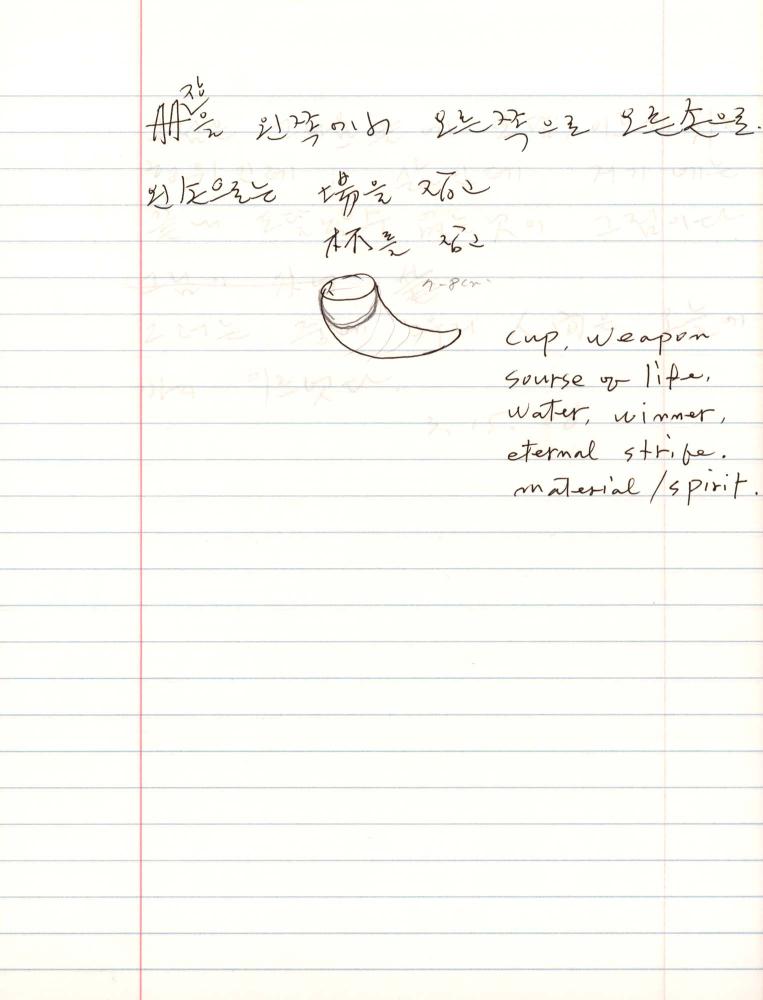 冊을 왼쪽에서 오른쪽으로 오른손으로.
왼손으로는 場을 잡고
杯를 잡고
7-8cm.
cup, weapon
sourse of life,
water, winner,
eternal strife.
material / spirit.